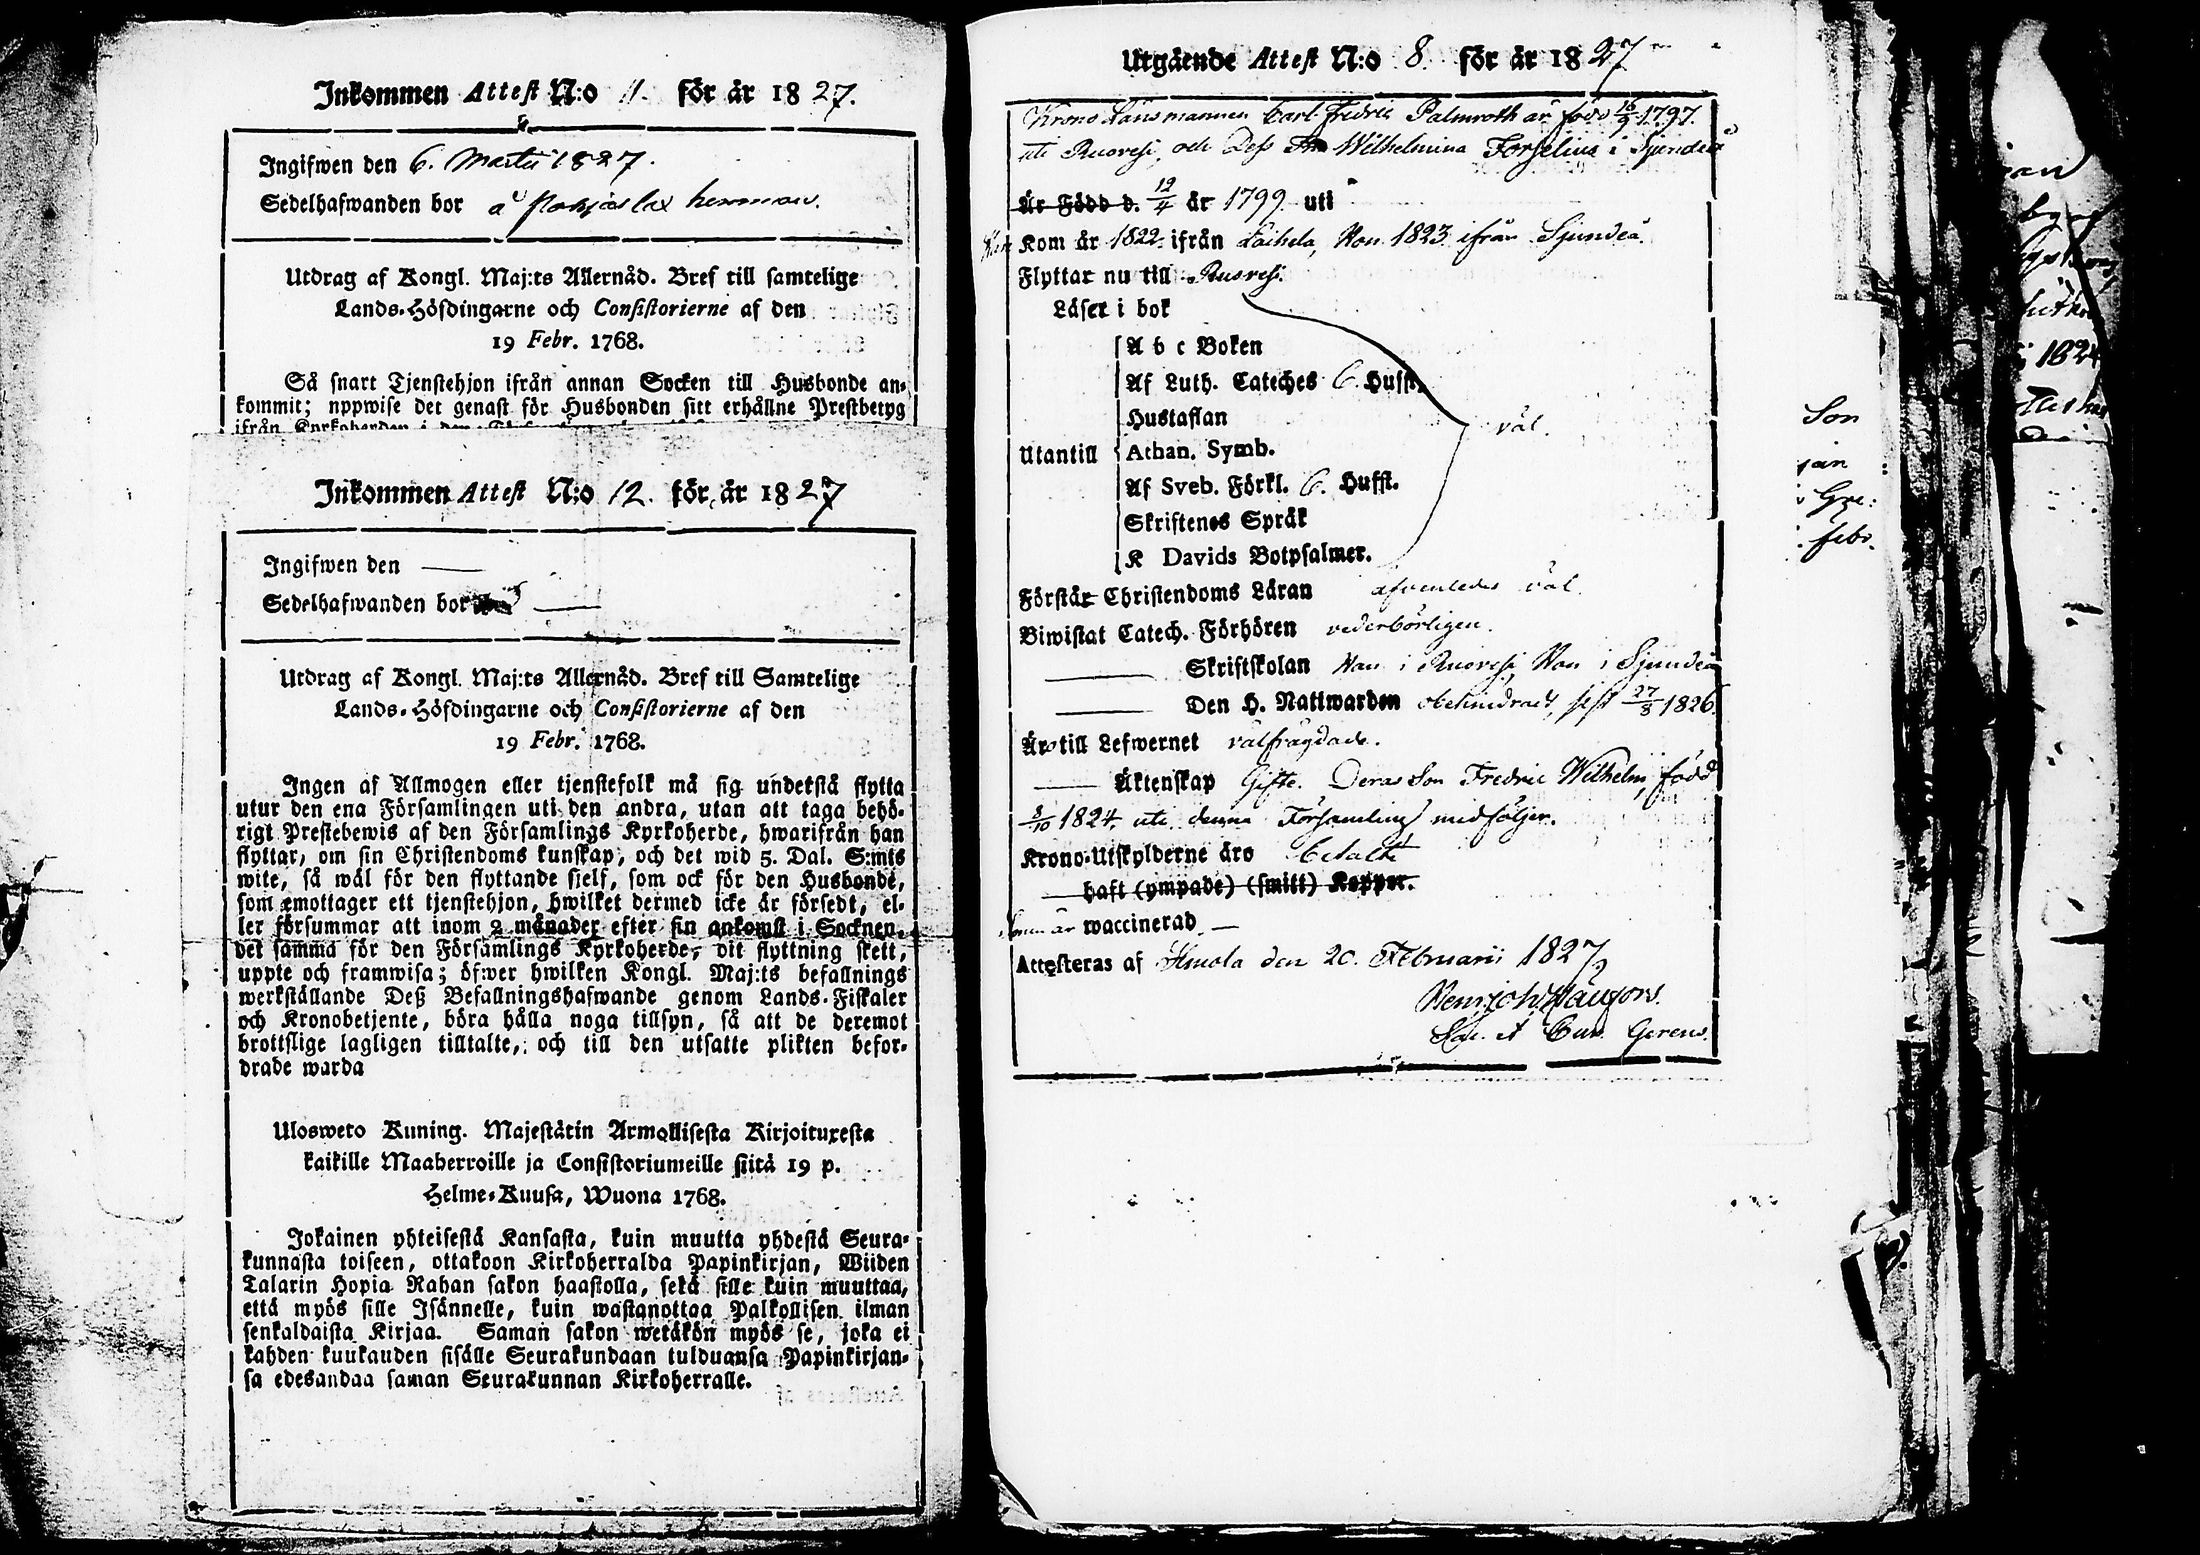 Inkommen Attest N:o 11. för år 1827.
Ingifwen den 6. Martii 1827.
Sedelhafwanden bor å herman.
Utdrag af Kongl. Maj:ts Allernåd. Bref till samtelige
Lands-Höfdingarne och Consistorierne af den
19 Febr. 1768.
Så snart Tjenstehjon ifrån annan Socken till Husbonde an-
kommit; uppwise det genast för Husbonden sitt erhållne Prestbetyg
Inkommen Attest N:o 12. för år 1827
Ingifwen den —
Sedelhafwanden bor —
Utdrag af Kongl. Maj:ts Allernåd. Bref till Samtelige
Lands-Höfdingarne och Consistorierne af den
19 Febr. 1768.
Ingen af Allmogen eller tjenstefolk må sig understå flytta
utur den ena Församlingen uti den andra, utan att taga behö-
rigt Prestebewis af den Församlings Kyrkoherde, hwarifrån han
flyttar, om sin Christendoms kunskap, och det wid 5. Dal. S:mts
wite, så wäl för den flyttande sjelf, som ock för den Husbonde,
som emottager ett tjenstehjon, hwilket dermed icke är försedt, el-
ler försummar att inom 2 månader efter sin ankomst i Socknen,
det samma för den Församlings Kyrkoherde, dit flyttning skett,
uppte och framwisa; öfwer hwilken Kongl. Maj:ts befallnings
werkställande Deß Befallningshafwande genom Lands-Fiskaler
och Kronobetjente, böra hålla noga tillsyn, så att de deremot
brottslige lagligen tilltalte, och till den utsatte plikten befor-
drade warda
Ulosweto Kuning. Majestätin Armollisesta Kirjoituxesta
kaikille Maaherroille ja Consistoriumeille siitä 19 p.
Helme-Kuusa, Wuona 1768.
Jokainen yhteisestä Kansasta, kuin muutta yhdestä Seura-
kunnasta toiseen, ottakoon Kirkoherralda Papinkirjan, Wiiden
Talarin Hopia Rahan sakon haastolla, sekä sille kuin muuttaa,
että myös sille Isännelle, kuin wastanottaa Palkollisen ilman
senkaldaista Kirjaa. Saman sakon wetäkön myös se, joka ei
kahden kuukauden sisälle Seurakundaan tulduansa Papinkirjan-
sa edesandaa saman Seurakunnan Kirkoherralle.
Utgående Attest N:o 8. för år 1827
Krono Länsmannen Carl Fredric Palmroth är född 16/9 1797.
uti Ruovesi, och Dess Fru Wilhelmina Forselius i Sjundeå
Är Född d. 12/4 år 1799 uti
Han Kom år 1822 ifrån Laihela, Hon 1823 ifrån Sjundeå.
Flyttar nu till Ruovesi.
Läser i bok
A b c Boken
Af Luth. Cateches 6. Hufst.
Hustaflan
väl.
Utantill Athan. Symb.
Af Sveb. Förkl. 6. Hufst.
Skriftenes Språk
K Davids Botpsalmer.
Förstår Christendoms Läran väl
Biwistat Catech. Förhören vederbörligen.
— Skriftskolan Han i Ruovesi, Hon i Sjundeå
— Den H. Nattwarden obehindradt, sist 27/8 1826.
Äro till Lefwernet välfrägdade.
— Äktenskap Gifte. Deras Son Fredric Wilhelm, född
3/10 1824. uti denna Församling medföljer.
Krono-Utskylderne äro betalte
— haft (ympade) (smitt) Koppor.
Sonen är waccinerad —
Attesteras af Ilmola den 20. Februarii 1827,
Sac. et Cur. Gerens.
Son
Gre:
febr.
1824